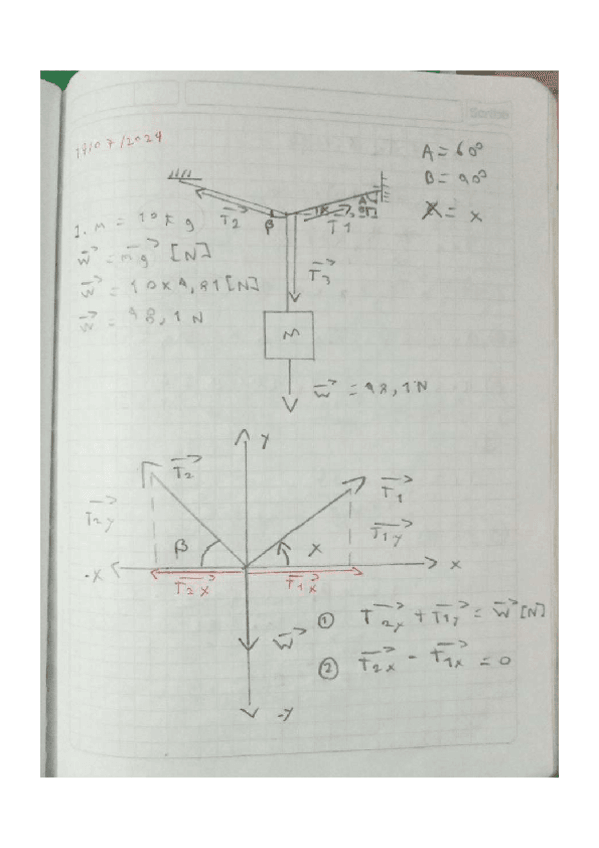 Scribe
19/07/2024
A = 60°
B = 90°
X = x
T2 β T1
1. m = 10 kg
w = mg [N]
w = 10 x 9,81 [N]
w = 98,1 N
T3
M
w = 98,1 N
y
T2 T1
T2y T1y
β x
-x x
T2x T1x
w
① T2y + T1y = w [N]
② T2x - T1x = 0
-y